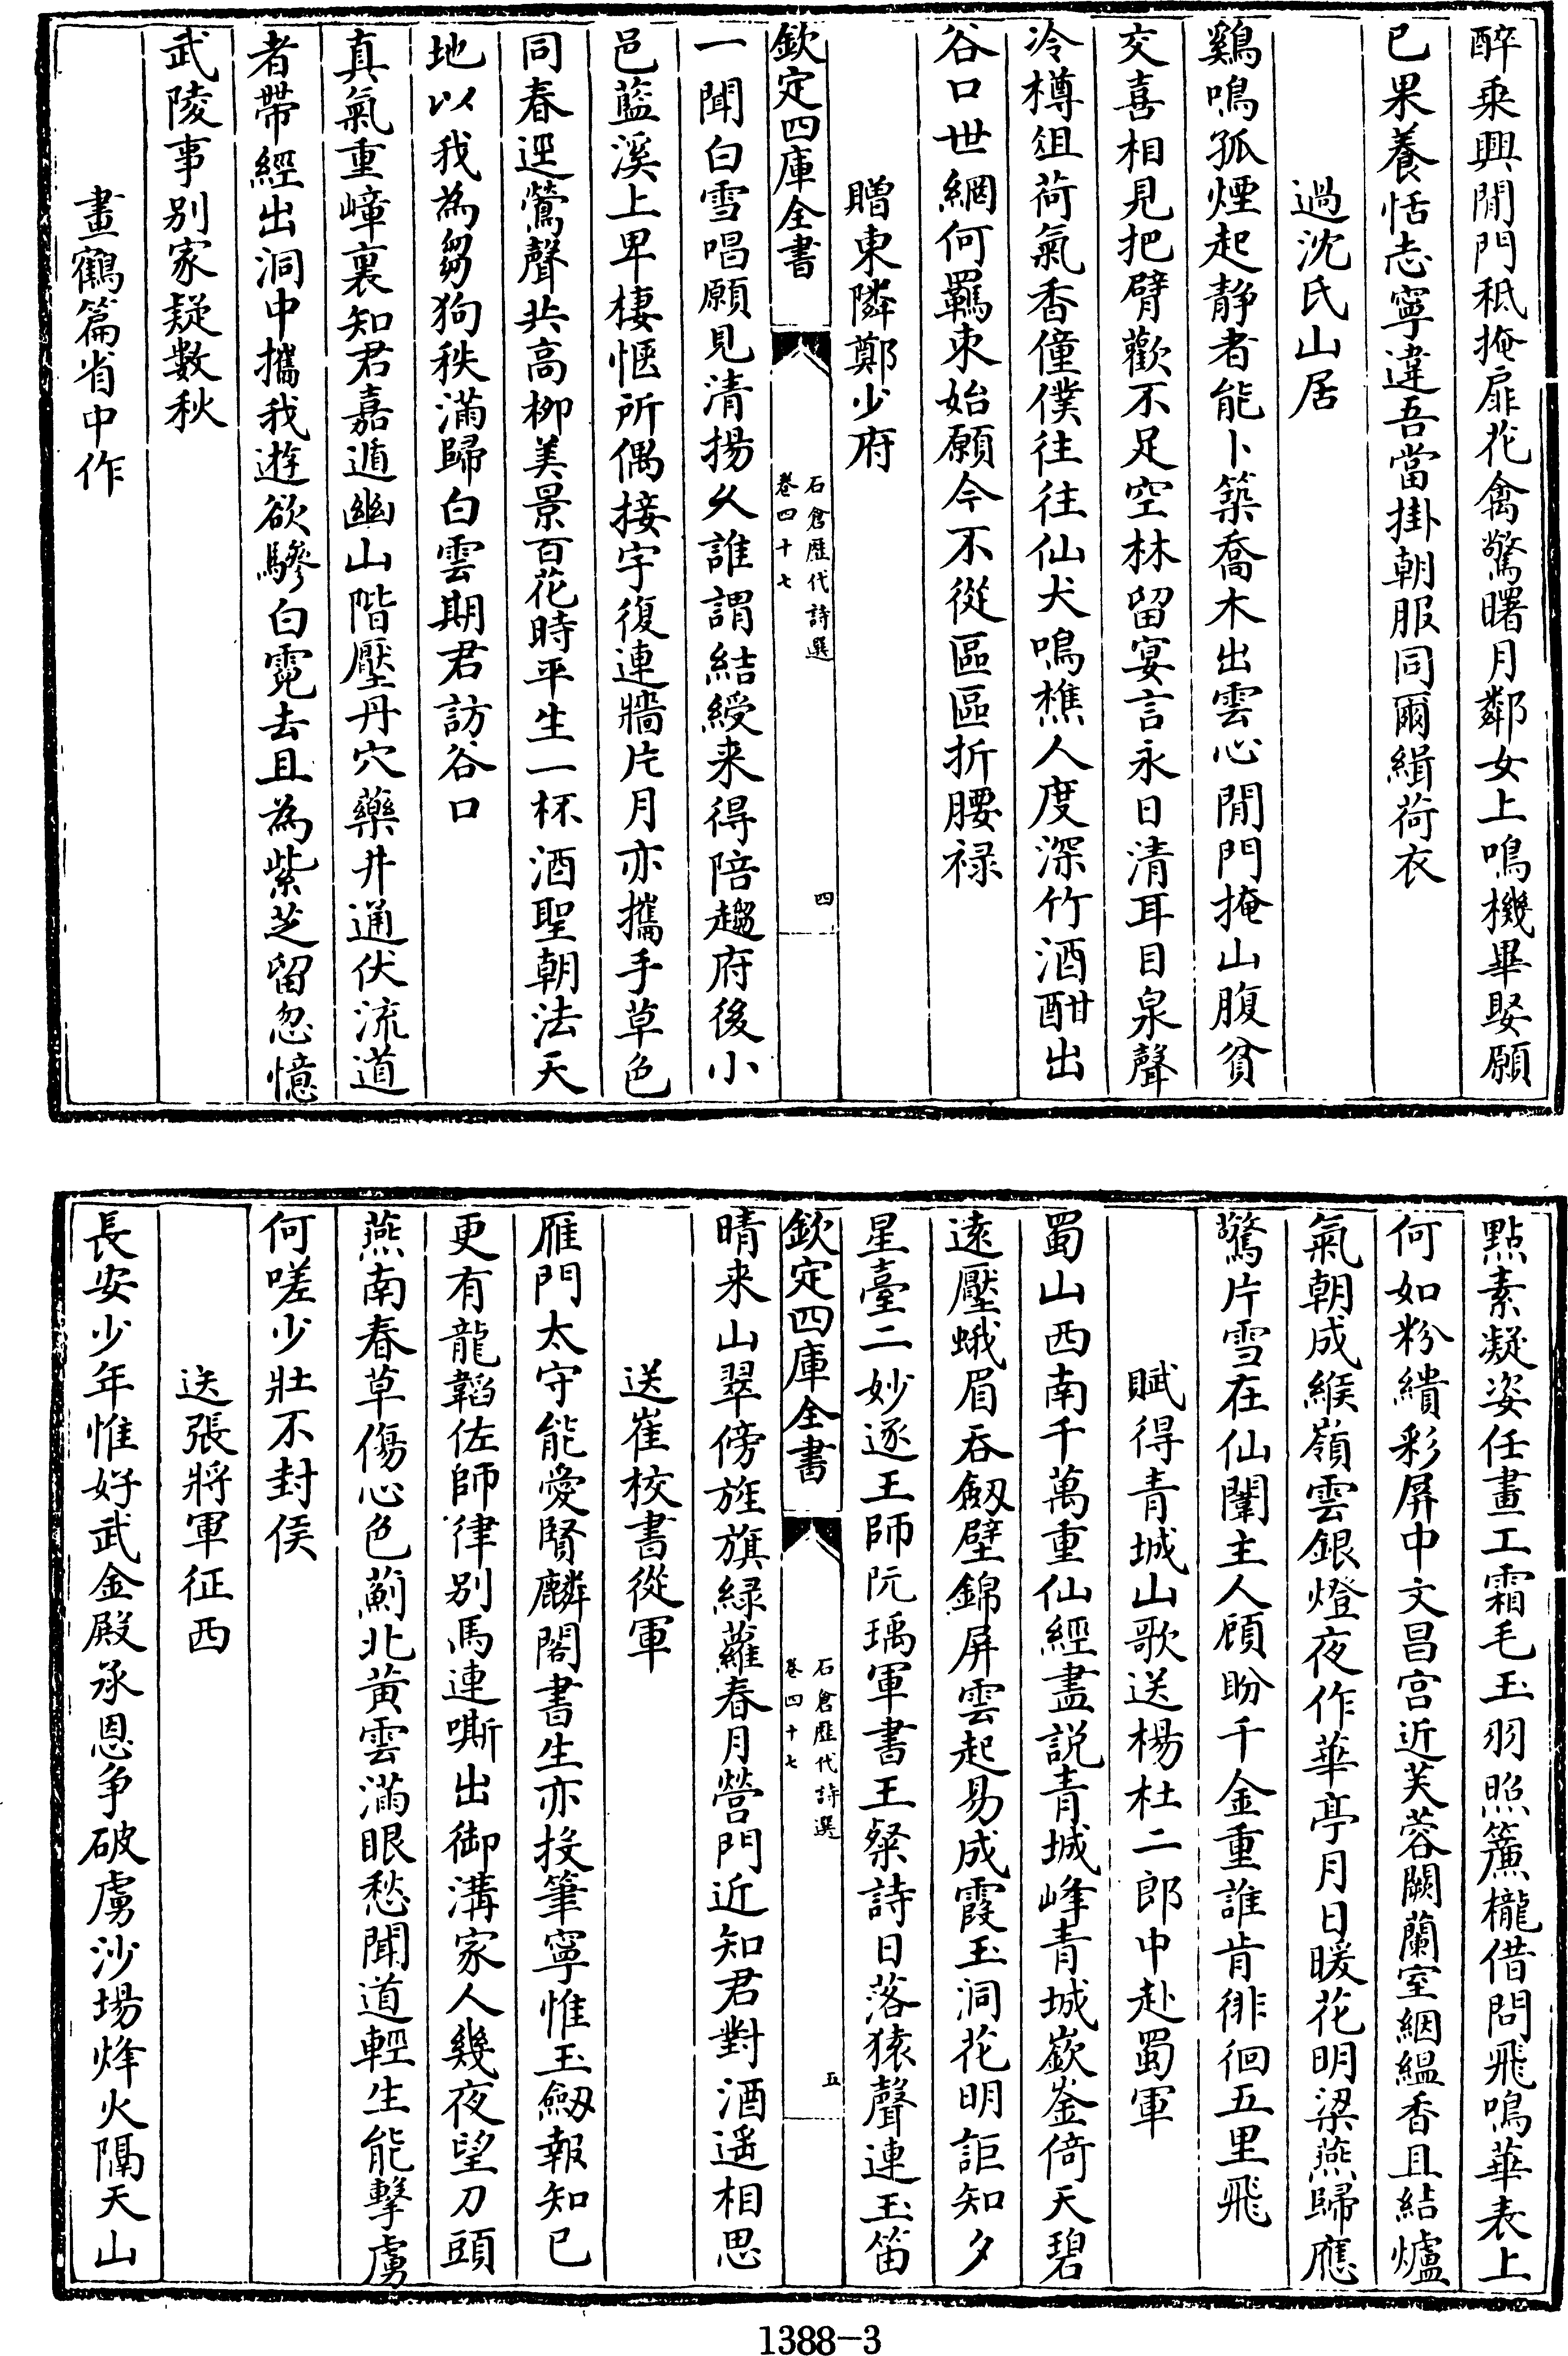 醉乗興閒門秪掩扉花禽驚曙月鄰女上鳴機畢娶願
已果養恬志寧違吾當掛朝服同爾緝荷衣
過沈氏山居
鷄鳴孤煙起静者能卜築喬木出雲心閒門掩山腹貧
交喜相見把臂歡不足空林留宴言永日清耳目泉聲
冷樽俎荷氣香僮僕往往仙犬鳴樵人度深竹酒酣出
谷口世網何羈束始願今不從區區折腰禄
贈東隣鄭少府
欽定四庫全書
石倉歴代詩選
卷四十七
四
一聞白雪唱願見清揚久誰謂結綬来得陪趨府後小
邑藍溪上卑棲愜所偶接宇復連牆片月亦攜手草色
同春逕鶯聲共高栁美景百花時平生一杯酒聖朝法天
地以我為芻狗秩滿歸白雲期君訪谷口
真氣重嶂裏知君嘉遁幽山階壓丹穴藥井通伏流道
者帶經出洞中攜我遊欲驂白霓去且為紫芝留忽憶
武陵事别家疑數秋
畫鶴篇省中作
點素凝姿任畫工霜毛玉羽照簾櫳借問飛鳴華表上
何如粉繢彩屏中文昌宫近芙蓉闕蘭室絪緼香且結爐
氣朝成緱嶺雲銀燈夜作華亭月日暖花明梁燕歸應
驚片雪在仙闈主人顧盼千金重誰肯徘徊五里飛
賦得青城山歌送楊杜二郎中赴蜀軍
蜀山西南千萬重仙經盡説青城峰青城嶔崟倚天碧
逺壓蛾眉吞劔壁錦屏雲起易成霞玉洞花明詎知夕
星臺二妙逐王師阮瑀軍書王粲詩日落猿聲連玉笛
欽定四庫全書
石倉歴代詩選
卷四十七
五
晴来山翠傍旌旗緑蘿春月營門近知君對酒遥相思
送崔校書從軍
雁門太守能愛賢麟閣書生亦投筆寧惟玉劔報知已
更有龍韜佐師律别馬連嘶出御溝家人幾夜望刀頭
燕南春草傷心色薊北黄雲滿眼愁聞道輕生能擊虜
何嗟少壯不封侯
送張將軍征西
長安少年惟好武金殿承恩争破虜沙場烽火隔天山
1388-3